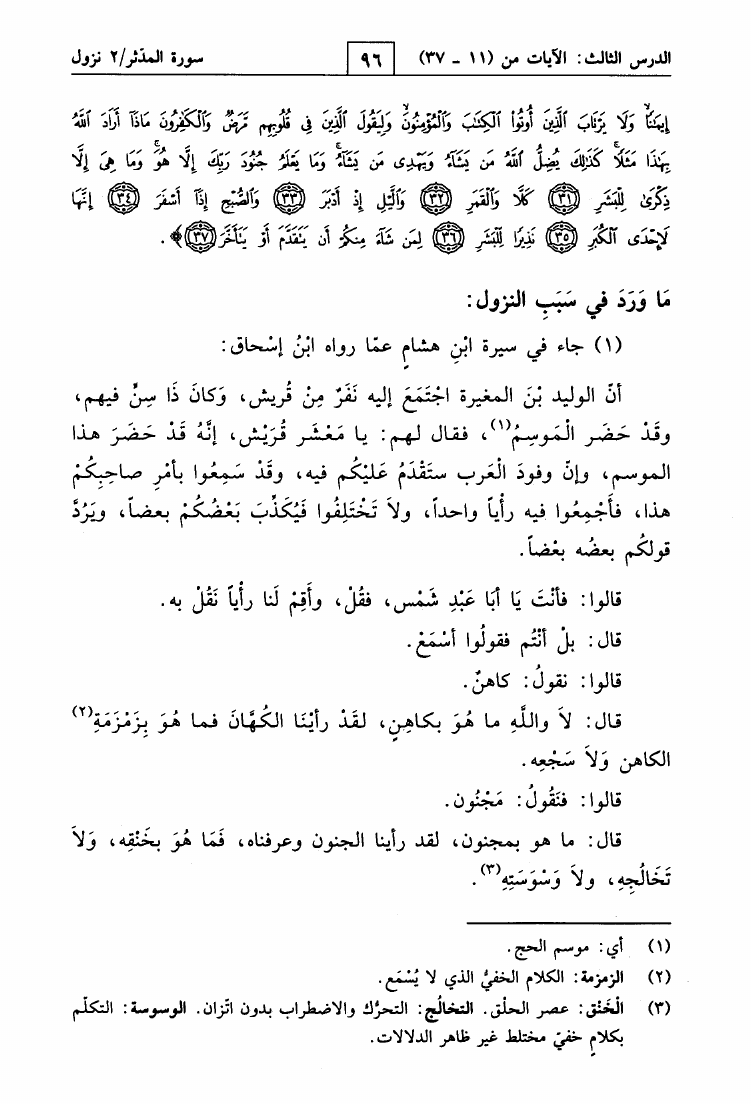 الدرس الثالث: الآيات من (١١ - ٣٧) ٩٦ سورة المدّثر/٢ نزول
إِيمَٰنًا وَلَا يَرْتَابَ ٱلَّذِينَ أُوتُوا۟ ٱلْكِتَٰبَ وَٱلْمُؤْمِنُونَ وَلِيَقُولَ ٱلَّذِينَ فِى قُلُوبِهِم مَّرَضٌ وَٱلْكَٰفِرُونَ مَاذَآ أَرَادَ ٱللَّهُ
بِهَٰذَا مَثَلًا كَذَٰلِكَ يُضِلُّ ٱللَّهُ مَن يَشَآءُ وَيَهْدِى مَن يَشَآءُ وَمَا يَعْلَمُ جُنُودَ رَبِّكَ إِلَّا هُوَ وَمَا هِىَ إِلَّا
ذِكْرَىٰ لِلْبَشَرِ ٣١ كَلَّا وَٱلْقَمَرِ ٣٢ وَٱلَّيْلِ إِذْ أَدْبَرَ ٣٣ وَٱلصُّبْحِ إِذَآ أَسْفَرَ ٣٤ إِنَّهَا
لَإِحْدَى ٱلْكُبَرِ ٣٥ نَذِيرًا لِّلْبَشَرِ ٣٦ لِمَن شَآءَ مِنكُمْ أَن يَتَقَدَّمَ أَوْ يَتَأَخَّرَ ٣٧﴾.
مَا وَرَدَ في سَبَبِ النزول:
(١) جاء في سيرة ابْنِ هشامٍ عمّا رواه ابْنُ إسْحاق:
أنّ الوليد بْنَ المغيرة اجْتَمَعَ إليه نَفَرٌ مِنْ قُريش، وَكانَ ذَا سِنٍّ فيهم،
وقَدْ حَضَر الْمَوسِمُ(١)، فقال لهم: يا مَعْشَر قُرَيْش، إنَّهُ قَدْ حَضَرَ هذا
الموسم، وإنّ وفودَ الْعَرب ستَقْدَمُ عَلَيْكُم فيه، وقَدْ سَمِعُوا بأمْرِ صاحِبِكُمْ
هذا، فَأَجْمِعُوا فيه رأْياً واحداً، ولاَ تَخْتَلِفُوا فَيُكَذِّبَ بَعْضُكُمْ بعضاً، ويَرُدَّ
قولكُم بعضُه بعْضاً.
قالوا: فأنْتَ يَا أبَا عَبْدِ شَمْس، فقُلْ، وأَقِمْ لَنا رأْياً نَقُلْ به.
قال: بلْ أنْتُم فقولُوا أسْمَعْ.
قالوا: نقولُ: كاهنٌ.
قال: لاَ واللَّهِ ما هُوَ بكاهِنٍ، لقَدْ رأيْنَا الكُهَّانَ فما هُوَ بِزَمْزَمَةِ(٢)
الكاهن وَلاَ سَجْعِه.
قالوا: فنَقُولُ: مَجْنُون.
قال: ما هو بمجنون، لقد رأينا الجنون وعرفناه، فَمَا هُوَ بخَنْقِه، وَلاَ
تَخَالُجِهِ، ولاَ وَسْوَسَتِهِ(٣).
(١) أي: موسم الحج.
(٢) الزمزمة: الكلام الخفيُّ الذي لا يُسْمَع.
(٣) الْخَنْق: عصر الحلْق. التخالُج: التحرُّك والاضطراب بدون اتّزان. الوسوسة: التكلّم
بكلامٍ خفيّ مختلط غير ظاهر الدلالات.